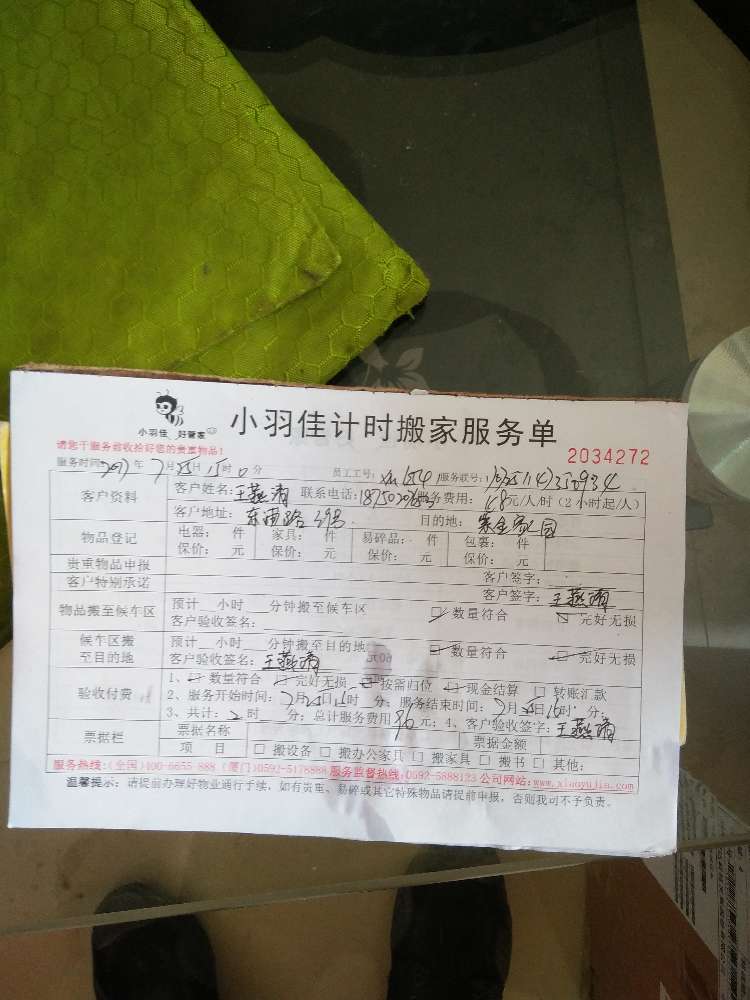 小羽佳 好管家
小羽佳计时搬家服务单
请您于服务前收拾好您的贵重物品!
2034272
服务时间: 年7月25日15时0分 员工工号: 服务联号:
客户资料 客户姓名:王燕清 联系电话: 服务费用:48元/人/时(2小时起/人)
客户地址: 目的地:
物品登记 电器: 件 家具: 件 易碎品: 件 包裹: 件
保价: 元 保价: 元 保价: 元 保价: 元
贵重物品申报 客户签字:
客户特别承诺 客户签字:王燕清
物品搬至候车区 预计 小时 分钟搬至候车区 数量符合 完好无损
客户验收签名:
候车区搬至目的地 预计 小时 分钟搬至目的地 数量符合 完好无损
客户验收签名:王燕清
验收付费 1、 数量符合 完好无损 按需归位 现金结算 转账汇款
2、服务开始时间:7月25日15时 分;服务结束时间:7月25日16时 分;
3、共计:2时 分;总计服务费用96元;4、客户验收签字:王燕清
票据栏 票据名称 票据金额
项 目 搬设备 搬办公家具 搬家具 搬书 其他:
服务热线:(全国)400-6655 888 (厦门)0592-5178888 服务监督热线:0592-5888123 公司网站:www.xiaoyujia.com
温馨提示:请提前办理好物业通行手续,如有贵重、易碎或其它特殊物品请提前申报,否则我司不予负责。